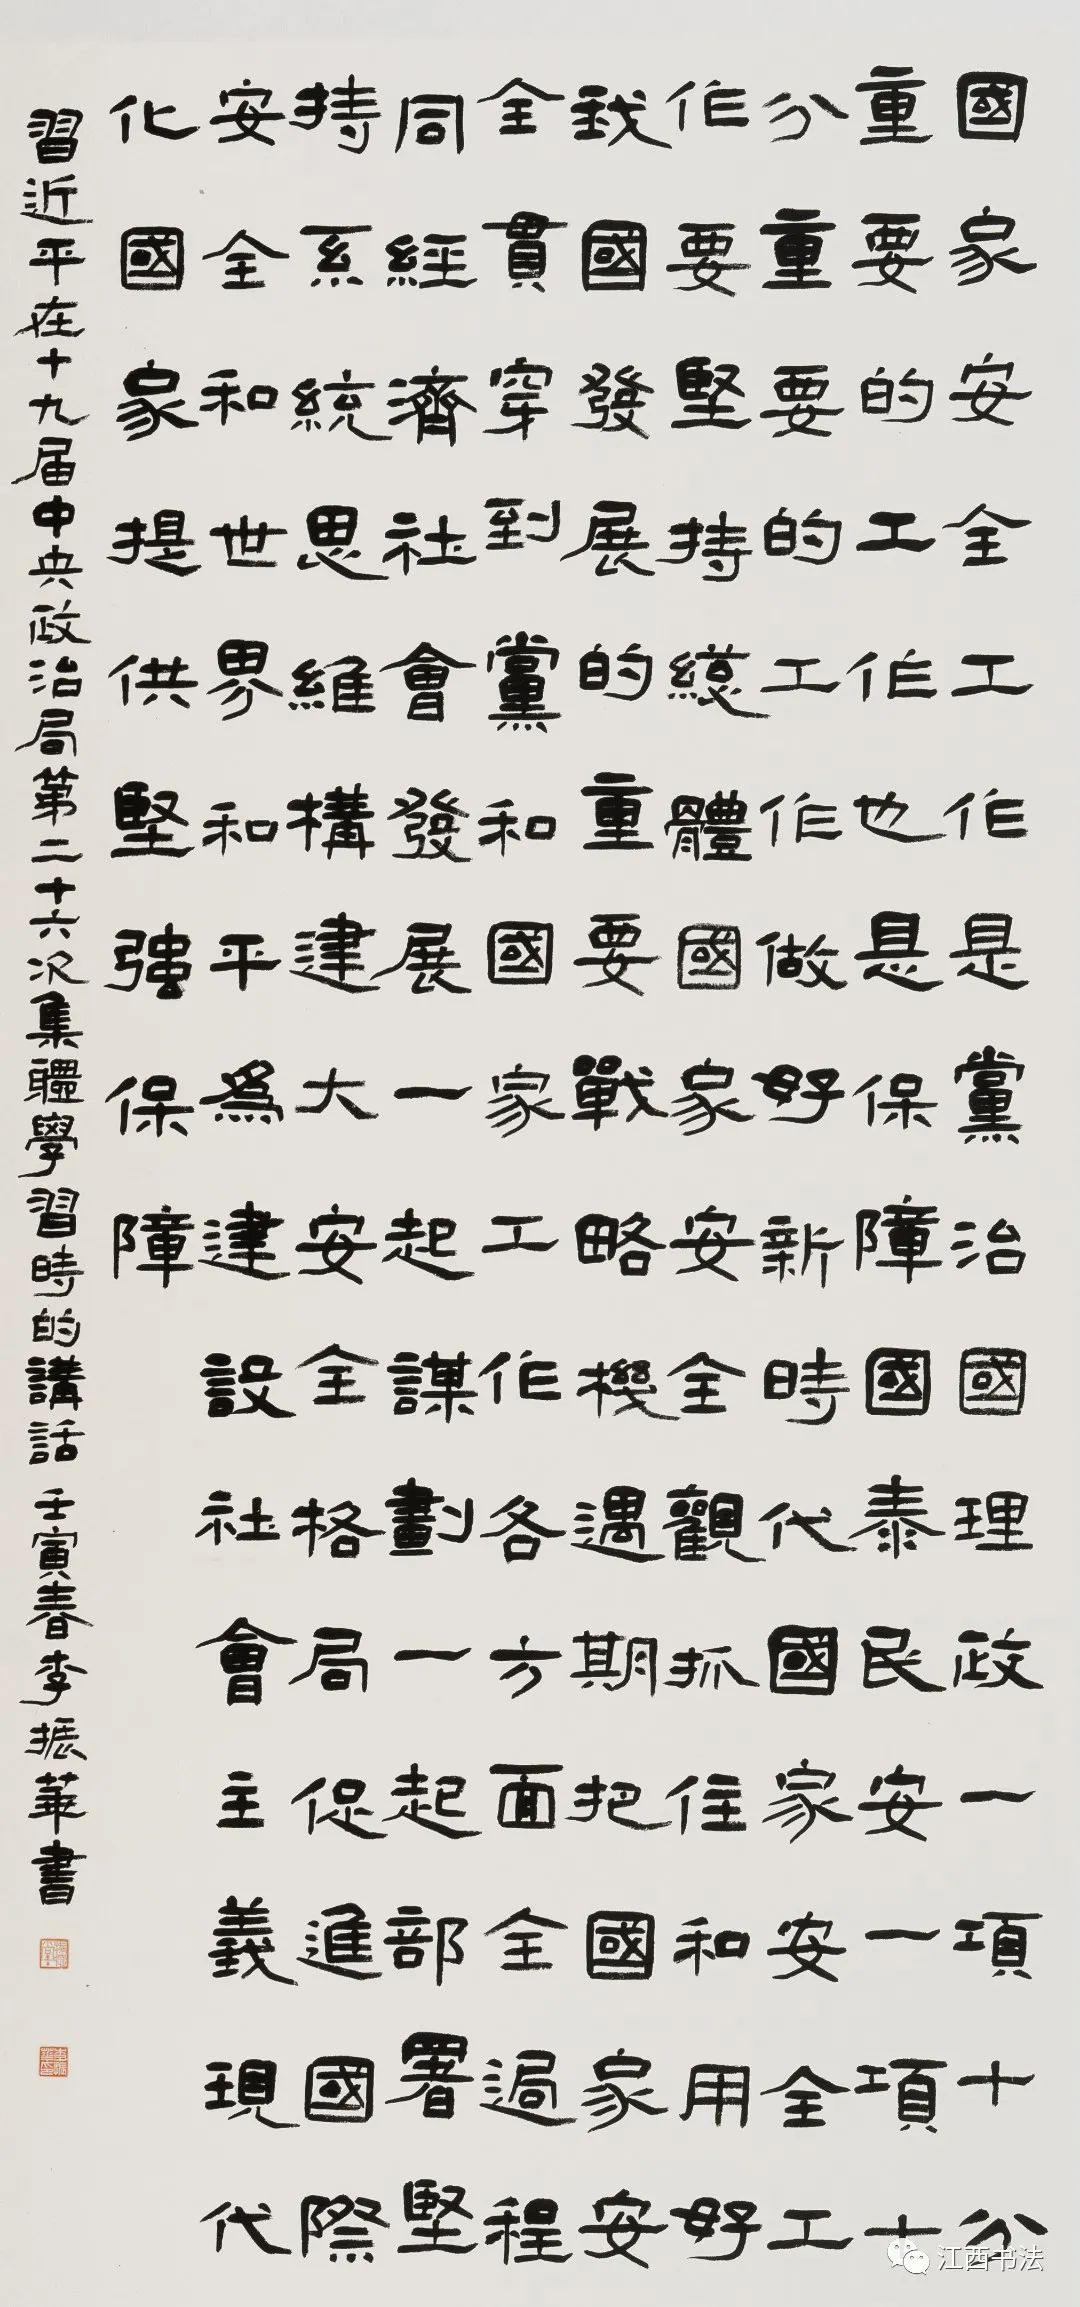 國家安全工作是黨治國理政一項十分
重要的工作也是保障國泰民安一項十
分重要的工作做好新時代國家安全工
作要堅持總體國家安全觀抓住和用好
我國發展的重要戰略機遇期把國家安
全貫穿到黨和國家工作各方面全過程
同經濟社會發展一起謀劃一起部署堅
持系統思維構建大安全格局促進國際
安全和世界和平為建設社會主義現代
化國家提供堅強保障
習近平在十九届中央政治局第二十六次集體學習時的講話 壬寅春李振華書
江西书法